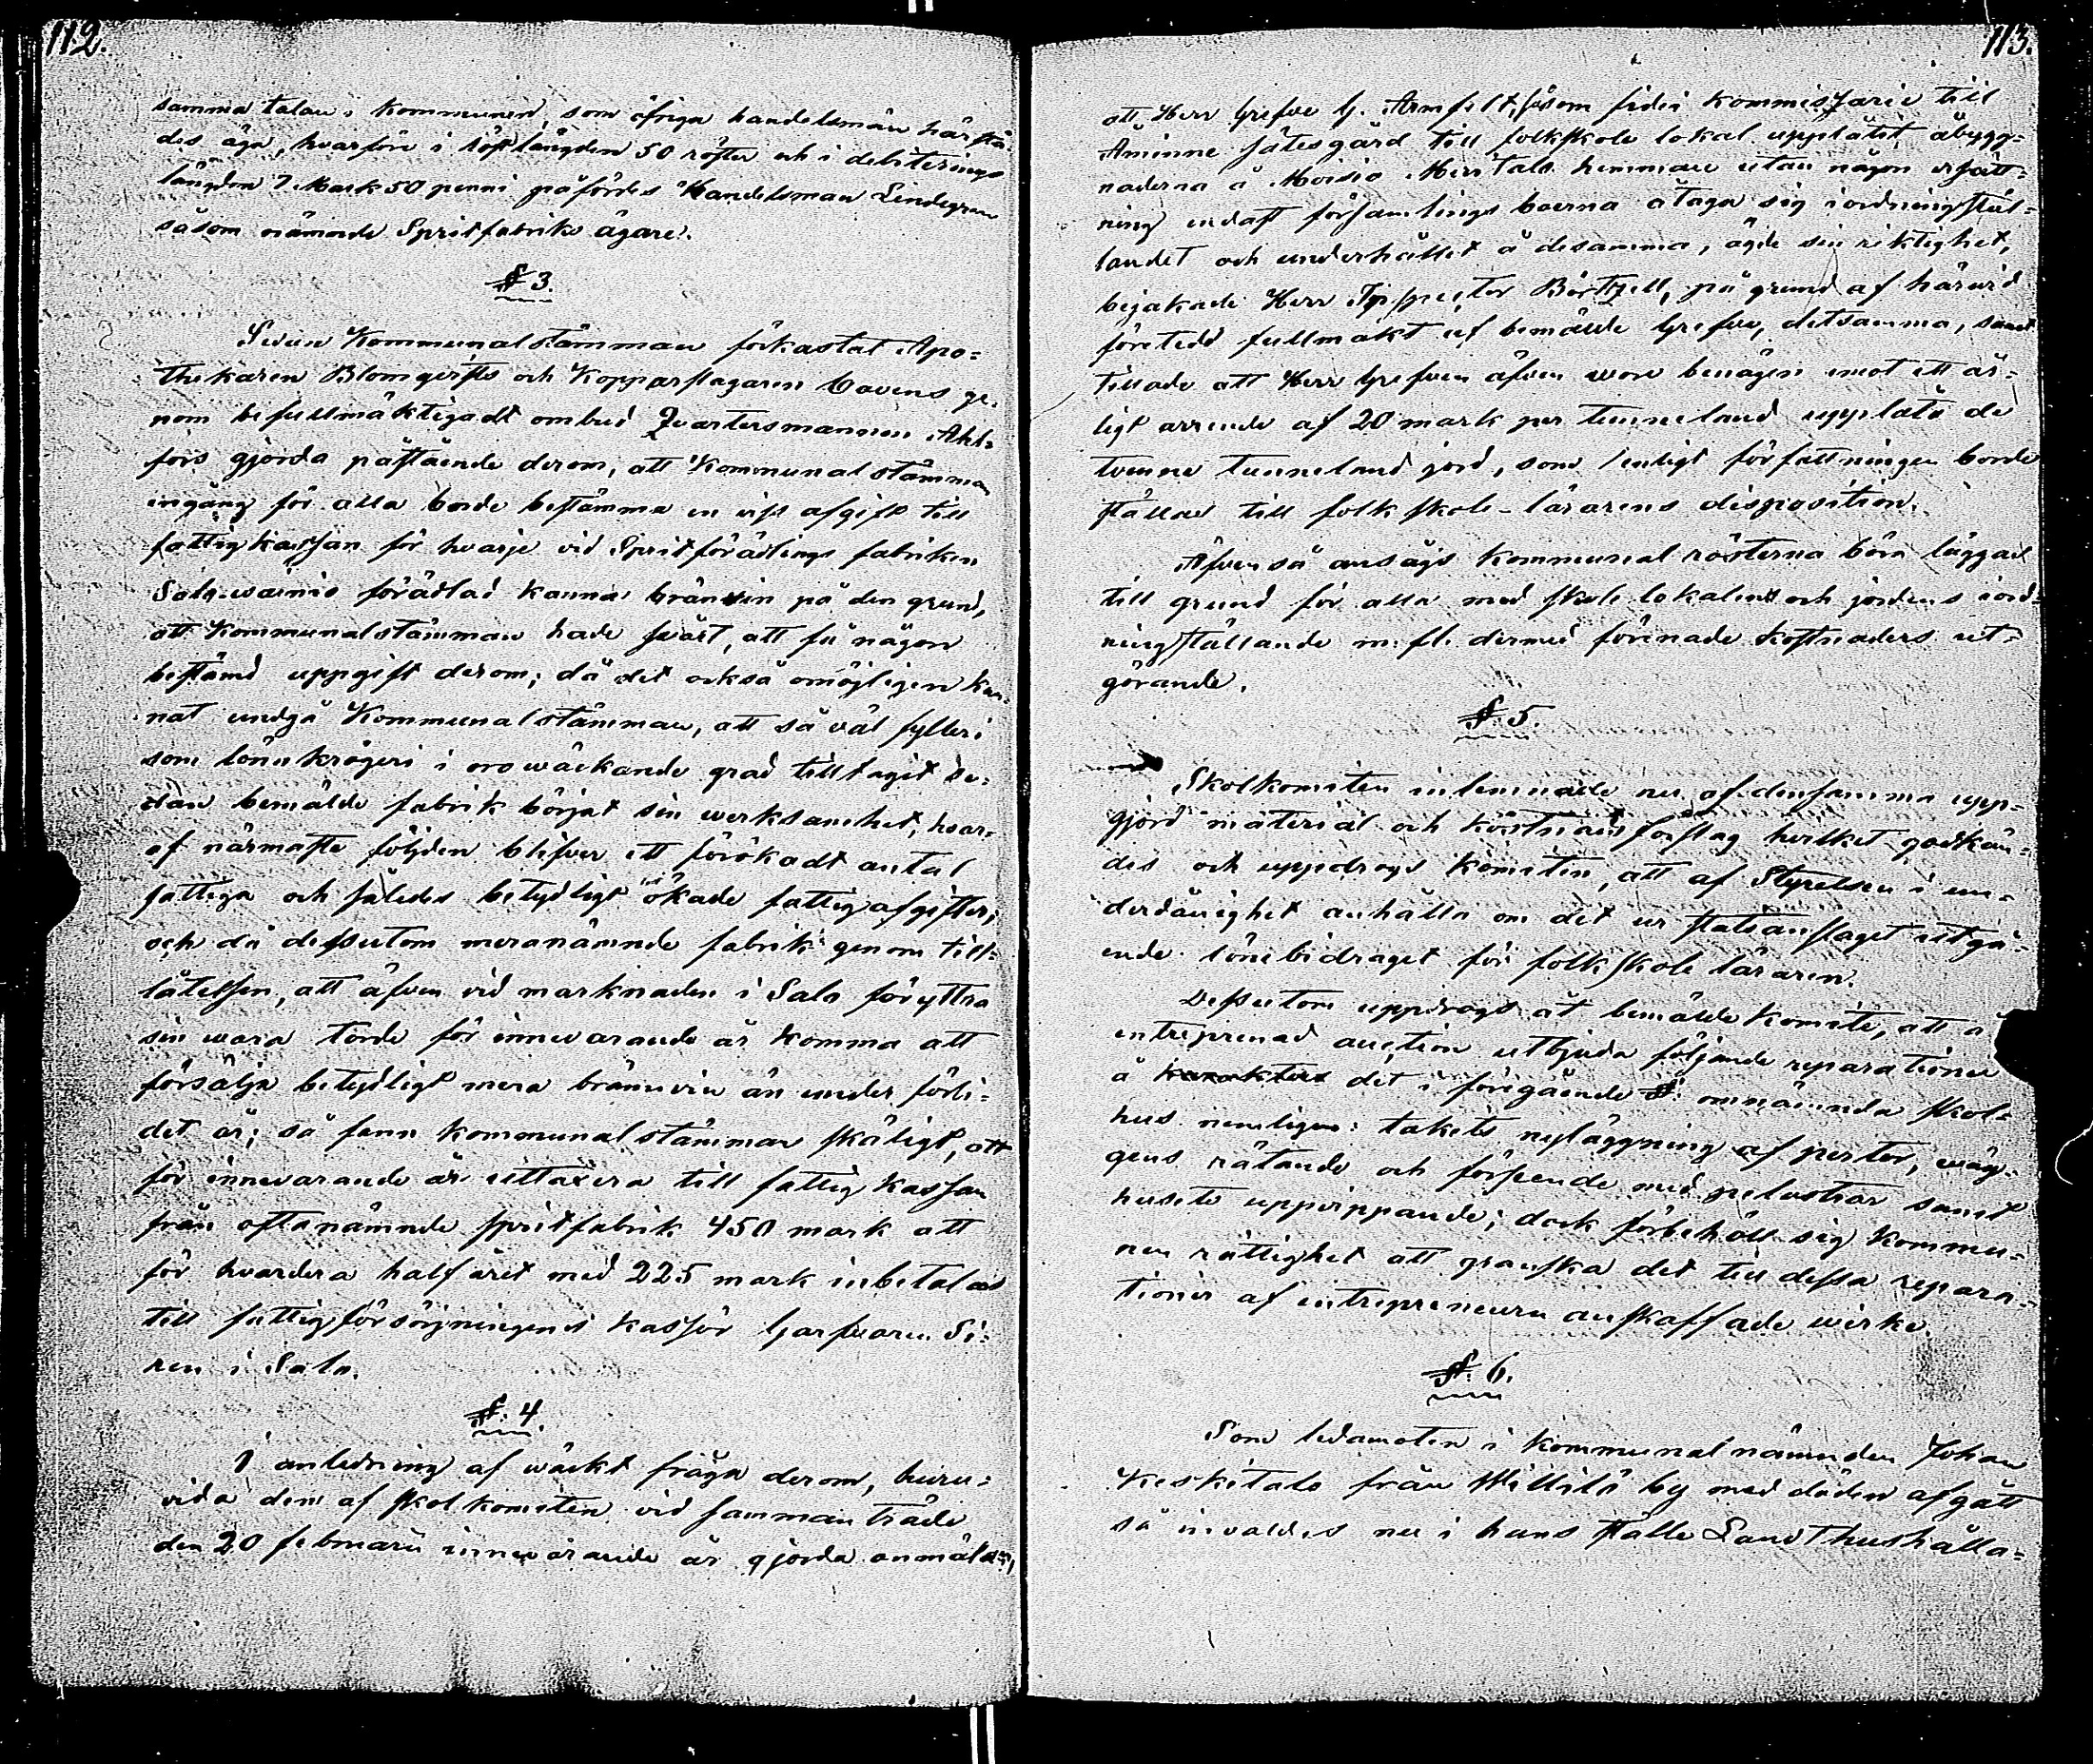 112.
samma talan i kommunen, som öfriga handelsmän härstä¬
des äga, hvarföre i röstlängden 50 röster och i debiterings
längden 7 Mark 50 penni påfördes Handelsman Lindegren
såsom nämnde Spritfabriks ägare.
§ 3.
Sedan Kommunalstämman förkastat Apo=
thekaren Blomqvists och Kopparslagaren Cavens ge¬
nom befullmäktigadt ombud Qvartersmannen Ahl=
fors gjorda påstående derom, att Kommunalstämman
engång för alla borde bestämma en viss afgift till
fattigkassan för hvarje vid Spritförädlings fabriken
Salo-wainio förädlad kanna bränvin på den grund,
att Kommunalstämman hade svårt, att få någon
bestämd uppgift derom; då det också omöjligen kun¬
nat undgå Kommunalstämman, att så väl fylleri
som lönnkrögeri i oroväckande grad tilltagit se¬
dan bemälde fabrik börjat sin verksamhet, hvar¬
af närmaste följden blifver ett förökadt antal
fattiga och således betydligt ökade fattigafgifter;
och då dessutom meranämnde fabrik genom till=
låtelsen, att äfven vid marknaden i Salo föryttra
sin wara torde för innevarande år komma att
försälja betydligt mera brännvin än under förli=
det år; så fann kommunalstämman skäligt, att
för innevarande år uttaxera till fattig kassan
från oftanämnde spritfabrik 450 mark att
för hvardera halfåret med 225 mark inbetalas
till fattigförsörjningens kassör Garfvaren Si=
ren i Salo.
§. 4.
I anledning af väckt fråga derom, huru=
vida den af skolkomiten vid sammanträde
den 20 februarii innevarande år gjorda anmälan,
113.
att Herr Grefve G. Armfelt, såsom fidei kommissarie till
Åminne sätesgård till folkskole lokal upplåtit åbygg=
naderna å Moisio Meritalo hemman utan någon ersätt=
ning endast församlingsboerna åtaga sig iordningstäl=
landet och underhållet å desamma, ägde sin riktighet,
bejakade Herr Inspector Börtzell, på grund af härvid
företedd fullmakt af bemälde Grefve, detsamma, samt
tillade att Herr Grefven äfven wore benägen emot ett år=
ligt arrende af 20 mark per tunneland upplåta de
tvenne tunneland jord, som enligt författningen borde
ställas till folkskole-lärarens disposition.
Äfvenså ansågs kommunal rösterna böra läggas
till grund för alla med skole lokalens och jordens iord=
ningställande m. fl. dermed förenade kostnaders ut=
görande.
§. 5.
Skolkomiten inlemnade nu af densamma upp=
gjord material och kostnads förslag hvilket godkän=
des och uppdrogs komiten, att af Styrelsen i un=
derdånighet anhålla om det ur statsanslaget utgå=
ende lönebidraget för folkskole läraren.
Dessutom uppdrogs åt bemälde Komite, att å
entreprenad auction utbjuda följande reparationer
å det i föregående §. omnämnda skol=
hus nemligen: takets nyläggning af pertor, väg¬
gens rätande och förseende med pelastrar samt
husets uppvippande; dock förbehöll sig Kommu=
nen rättighet att granska det till dessa repara=
tioner af entrepreneuren anskaffade wirke.
§. 6.
Som ledamoten i kommunalnämnden Johan
Keskitalo från Willilä by med döden afgått
så invaldes nu i hans ställe Landthushålla=